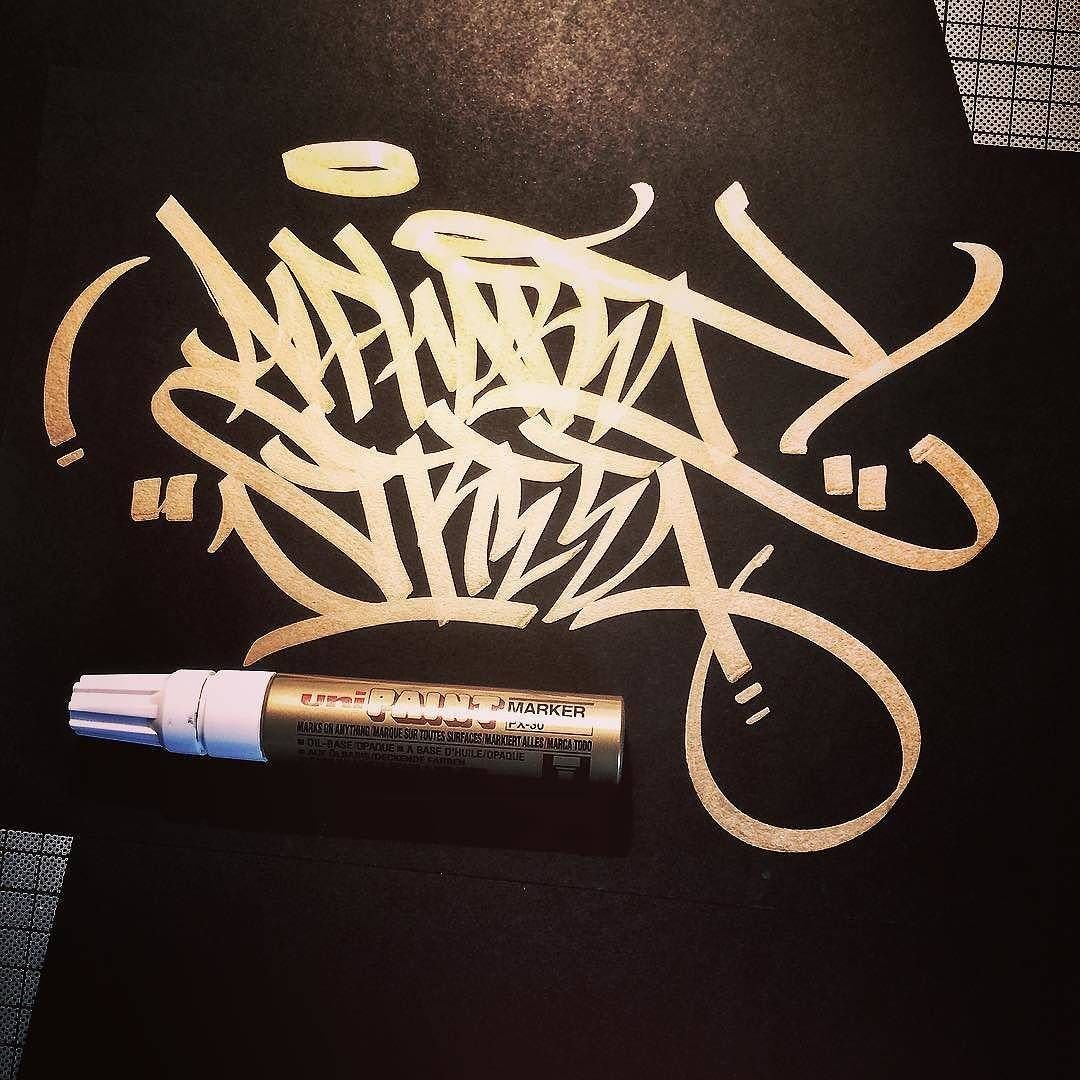 ALPHABET
STREET
uni PAINT MARKER
PX-30
MARKS ON ANYTHING/MARQUE SUR TOUTES SURFACES/MARKIERT ALLES/MARCA TODO
■ OIL-BASE/OPAQUE ■ A BASE D'HUILE/OPAQUE
■ AUF ÖLBASIS/DECKENDE FARBEN